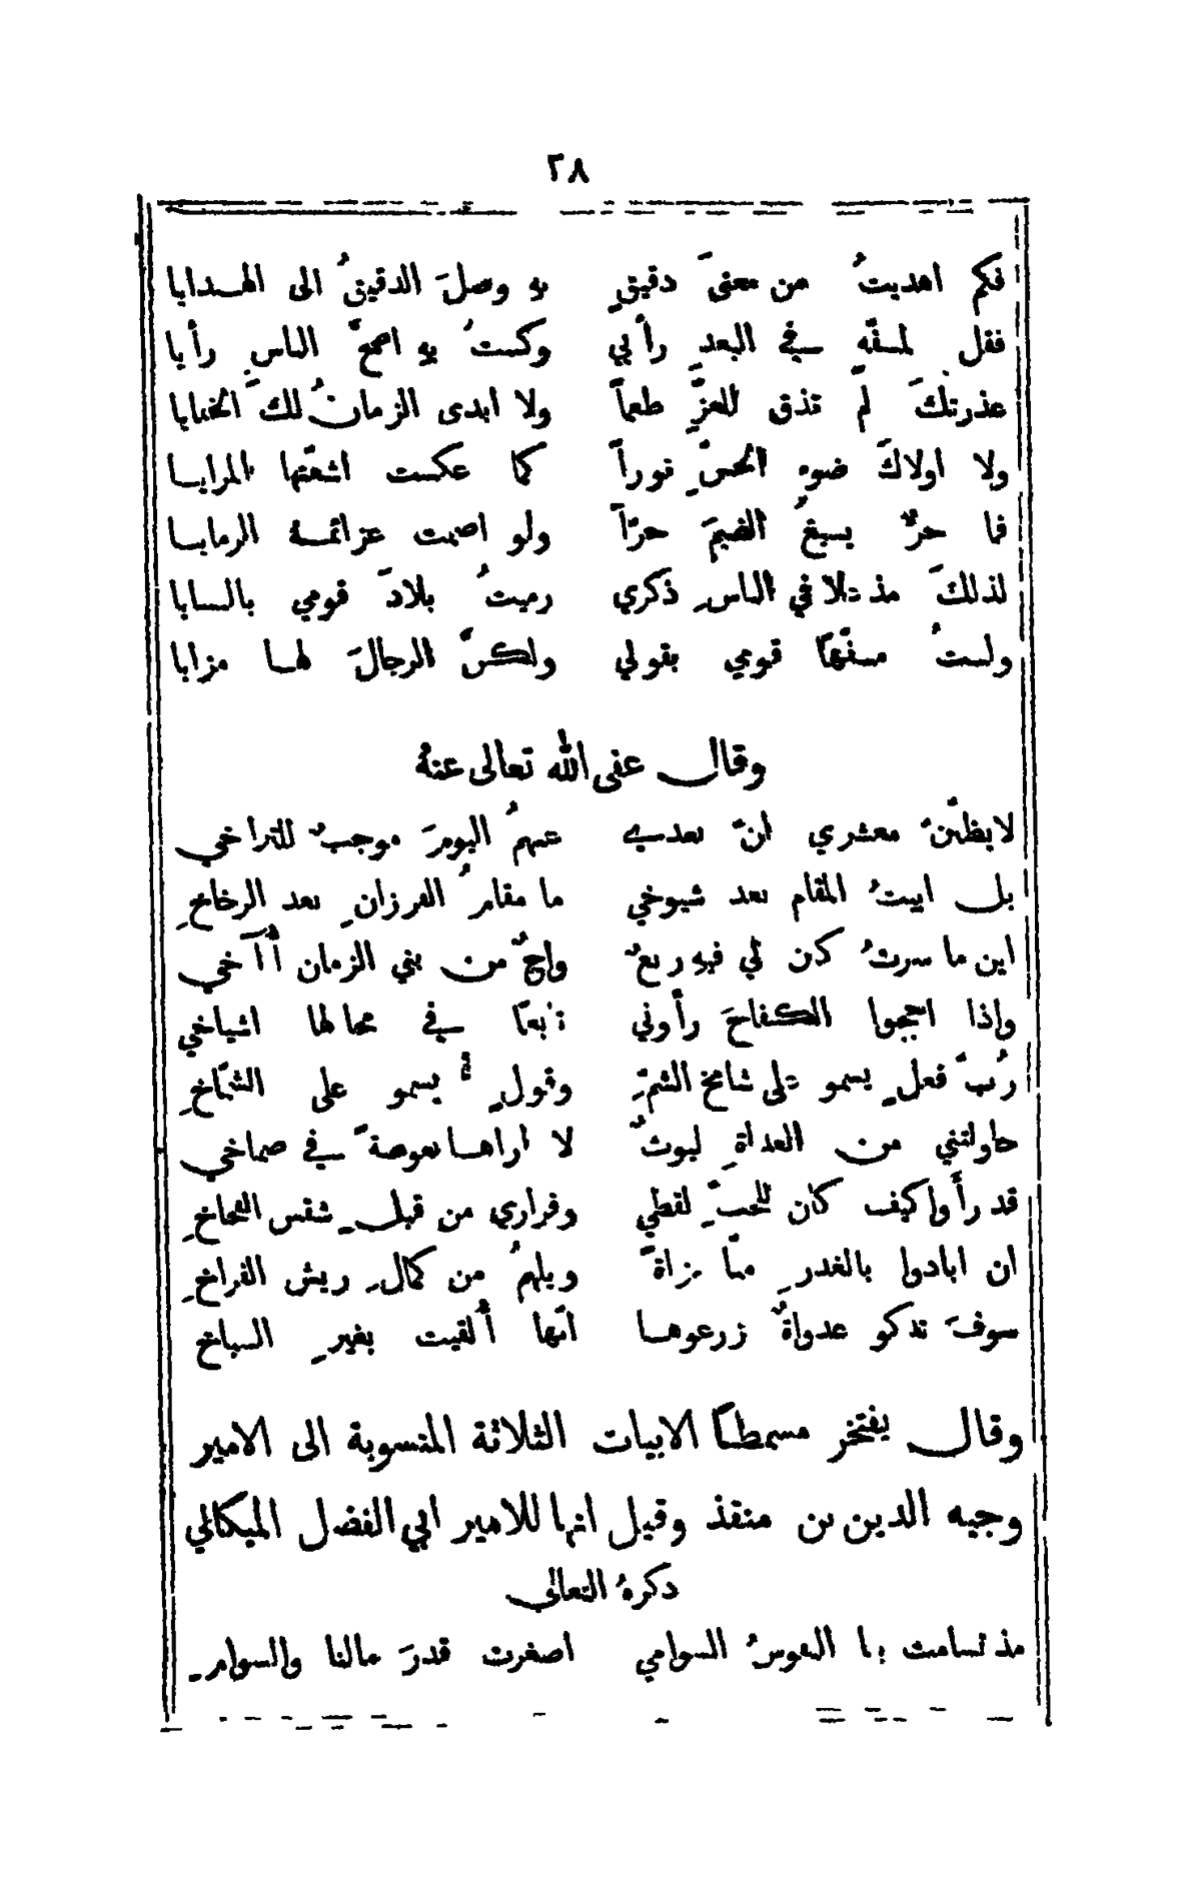 ٢٨
فكم اهديتُ من معنىً دقيقٍ به وصلَ الدقيقُ الى الهدايا
فقل لمسفّهٍ في البعد رأيي وكنتُ به اصحَّ الناسِ رأيا
عذرتكَ لم تذق للعزِّ طعماً ولا ابدى الزمانُ لك الخفايا
ولا اولاكَ ضوء الحسِّ نوراً كما عكست اشعّتها المرايا
فما حرٌّ يسيغُ الضيمَ حرّاً ولو اصمت عزائمه الرمايا
لذلكَ مذ علا في الناسِ ذكري رميتُ بلادَ قومي بالنسايا
ولستُ مسفّهاً قومي بقولي ولكنَّ الرجالَ لها مزايا
وقال عفى الله تعالى عنهُ
لا يظننَّ معشري انَّ بعدي عنهمُ اليومَ موجبٌ للتراخي
بل ابيتُ المقام بعد شيوخي ما مقامُ الفرزانِ بعد الرخاخِ
اين ما سرتُ كان لي فيهِ ربعٌ واخٌ من بني الزمان أُآخي
واذا احجموا الكفاحَ رأوني تابعاً في مجالها اشياخي
رُبَّ فعلٍ يسمو على شامخ الشمِّ وقولٍ يسمو على الشمّاخِ
حاولتني من العداةِ ليوثٌ لا اراها بعوضةً في صماخي
قد رأوا كيف كان للحبِّ لقطي وفراري من قبلِ شقس الفخاخِ
ان ابادوا بالغدرِ منّا بزاةً ويلهمُ من كمالِ ريش الفراخِ
سوفَ تذكو عدواةٌ زرعوها انّها أُلقيت بغيرِ السباخ
وقال يفتخر مسمطاً الابيات الثلاثة المنسوبة الى الامير
وجيه الدين بن منقذ وقيل انها للامير ابي الفضل الميكالي
ذكرهُ الثعالبي
مذ تسامت بنا النفوسُ السوامي اصغرت قدرَ مالنا والسوامِ